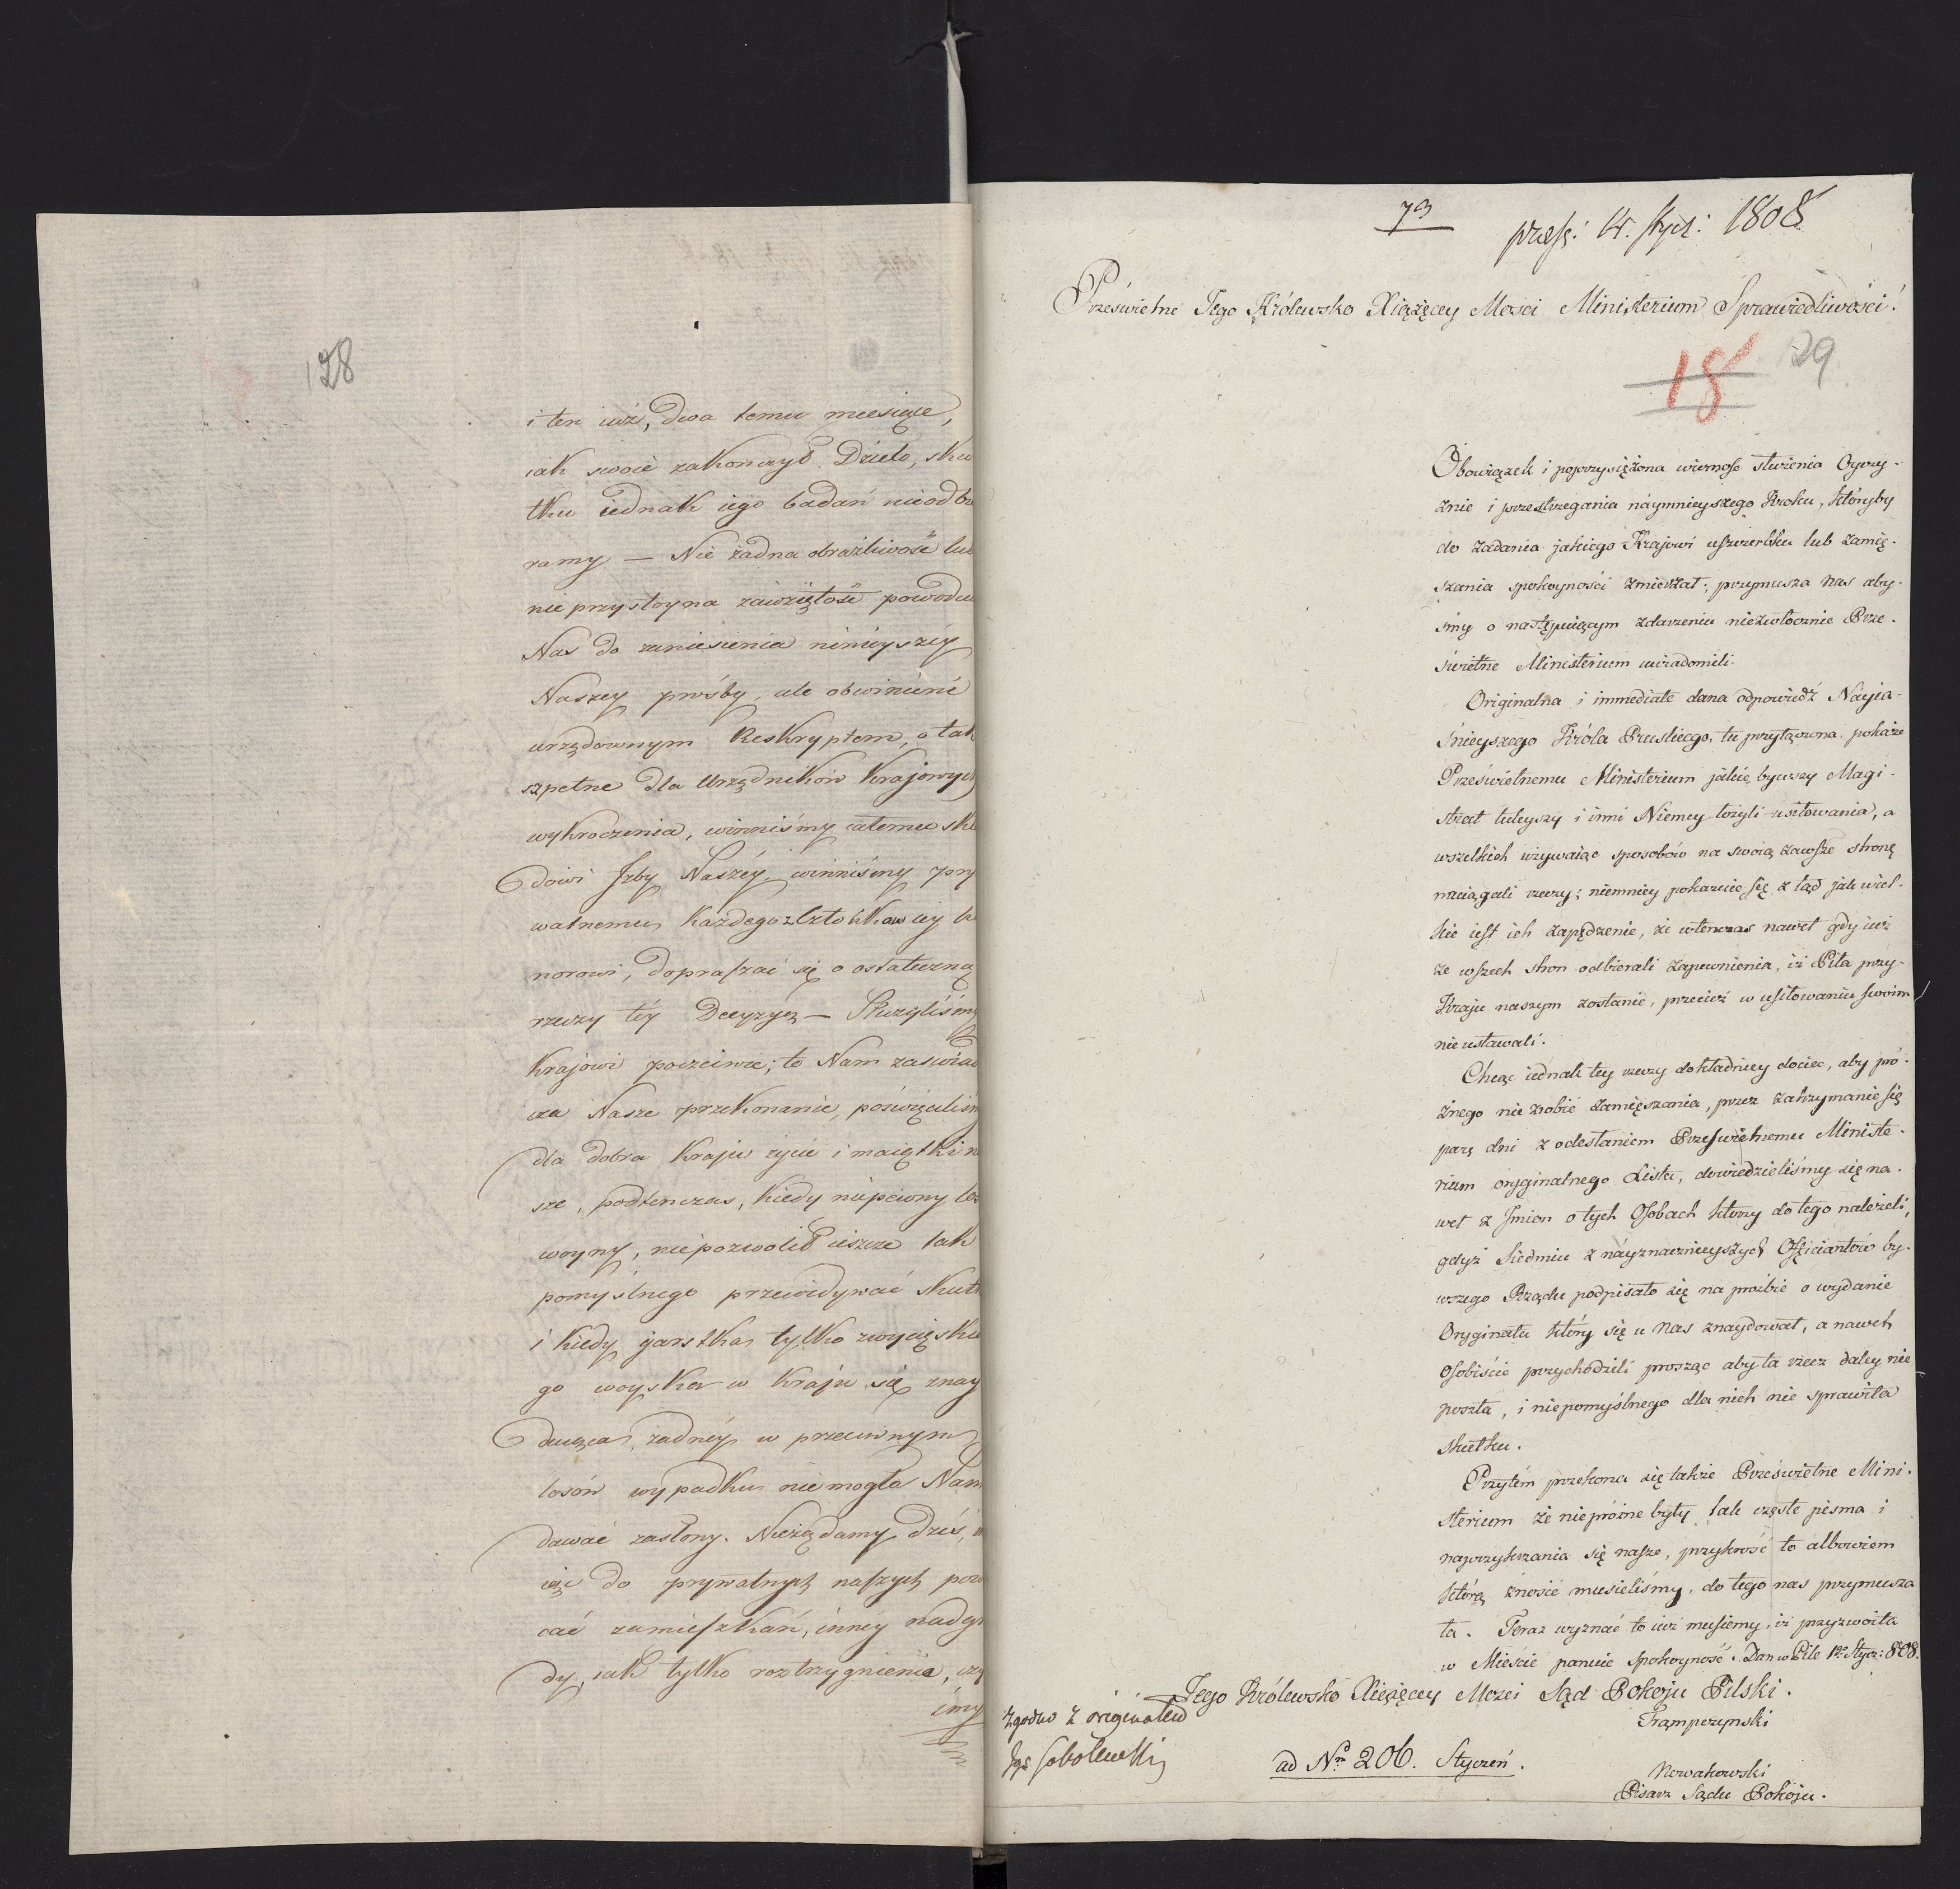 128
i ten iuż, dwa temu miesiące,
iak swoie zakonczył Dzieło, sku
tku iednak iego badań nieodbie
ramy — Nie żadna obraźliwość lub
nieprzystoyna zawziętość powodu
Nas do zaniesienia ninieyszéy
Naszey prośby, ale obwinienié
urzędownym Reskryptem, o tak
szpetne dla Urzędników Krajowych
wykroczenia, winniśmy całemu skł
dowi Izby Naszéy, winniśmy pry
watnemu każdego z Członków iéy ho
norowi, dopraszać się o ostateczną
rzeczy téy Decyzyą — Służyliśmy
Krajowi poczciwie; to Nam zaświad
cza Nasze przekonanie, poświęciliśmy
dla dobra Kraju życie i maiątki na
sze, podtenczas, kiedy niepewny los
woyny, niepozwolił ieszcze tak
pomyślnego przewidywać skutku
i kiedy garstka tylko zwycięskie
go woyska w Kraju się znay
duiąca, żadnéy w przeciwnym
losów wypadku nie mogła Nam
dawać zasłony. Nieżądamy dziś,
iąc do prywatnych naszych powra
cać zamieszkań, innéy nadgro
dy, iak tylko roztrzygnienia, czy
śmy
73
praes: 14. Stycz: 1808
Prześwietne Jego Królewsko Xiążęcey Mości Ministerium Sprawiedliwości!
18 29
Obowiązek i poprzysiężona wierność służenia Oyczy-
znie i przestrzegania náymnieyszego Kroku, któryby
do zadania jakiego Krajowi uszczerbku lub zamię-
szania spokoyności zmierzał; przymusza nas aby-
śmy o następuiącym zdarzeniu niezwłocznie Prze-
świetne Ministerium uwiadomili.
Originalna i immediate dana odpowiedź Nayia-
śnieyszego Króla Pruskiego, tu przyłączona, pokaże
Prześwietnemu Ministerium jakie bywszy Magi-
strat tuteyszy i inni Niemcy łożyli usiłowania, a
wszelkich używaiąc sposobów na swoią zawsze stronę
naciągali rzeczy; niemniey pokazuie się z tąd jak wiel-
kie iest ich zapędzenie, że wtenczas nawet gdy iuż
ze wszech stron odbierali zapewnienia, iż Piła przy
Kraju naszym zostanie, przecież w usiłowaniu swoim
nie ustawali.
Chcąc iednak tey rzeczy dokładniey dociec, aby pró-
żnego nie zrobić zamięszania, przez zatrzymanie się
parę dni z odesłaniem Prześwietnemu Ministe-
rium oryginalnego Listu, dowiedzieliśmy się na-
wet z Jmion o tych Osobach którzy do tego należeli,
gdyż siedmiu z náyznacznieyszych Officiantów by-
wszego Rządu podpisało się na prośbie o wydanie
Oryginału który się u Nas znaydował, a nawet
Osobiście przychodzili prosząc aby ta rzecz daley nie
poszła, i niepomyślnego dla nich nie sprawiła
skutku.
Przytém przekona się także Prześwietne Mini-
sterium że niepróżne były tak częste pisma i
naprzykrzania się nasze, przykrość to albowiem
którą znosić musieliśmy, do tego nas przymusza
ła. Teraz wyznać to iuż musiemy, iż przyzwoita
w Mieście panuie Spokoyność. Dan w Pile Stycz: 808.
Jego Królewsko Xiążęcey Mości Sąd Pokoju Pilski.
Zgodno z originałem
Trąmpczynski
Sobolewski
ad No 206. Styczeń.
Nowakowski
Pisarz Sądu Pokoju.